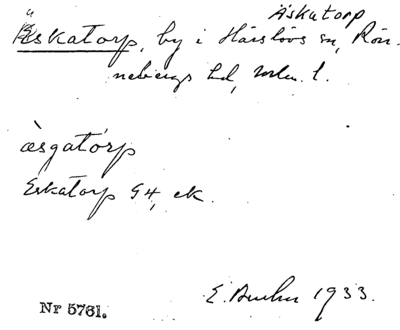 Äskatorp
Äskatorp, by i Härslövs sn, Rön-
nebergs hd, Mlm. l.
æ̀sgatórp
Eskatorp G4, ek.
E. 1933.
Nr 5761.